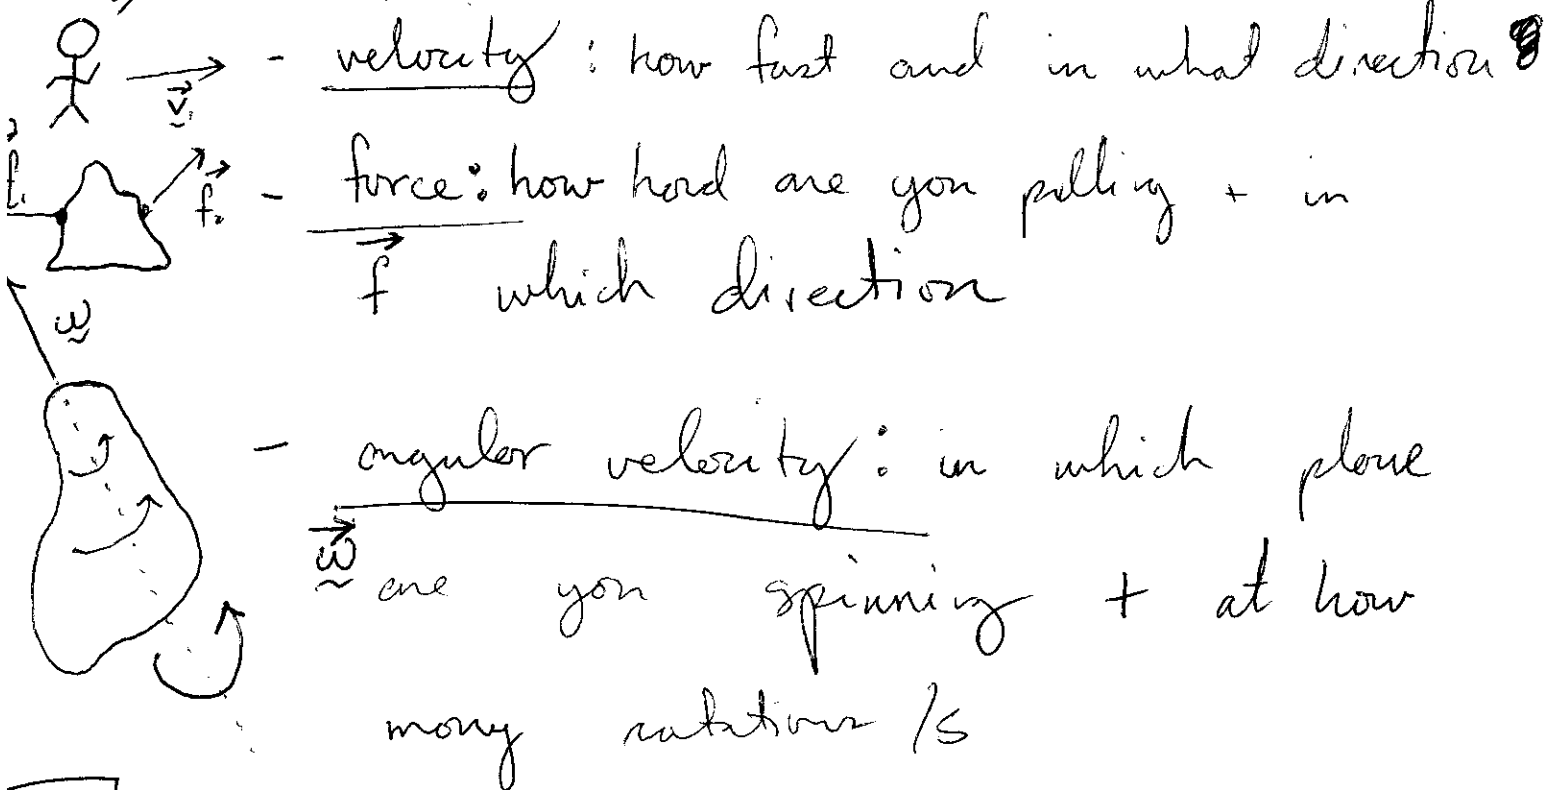 - velocity : how fast and in what direction
v⃗₁
f⃗₁
f⃗₂ - force: how hard are you pulling + in
f⃗ which direction
ω
- angular velocity: in which plane
ω⃗ are you spinning + at how
many rotations /s